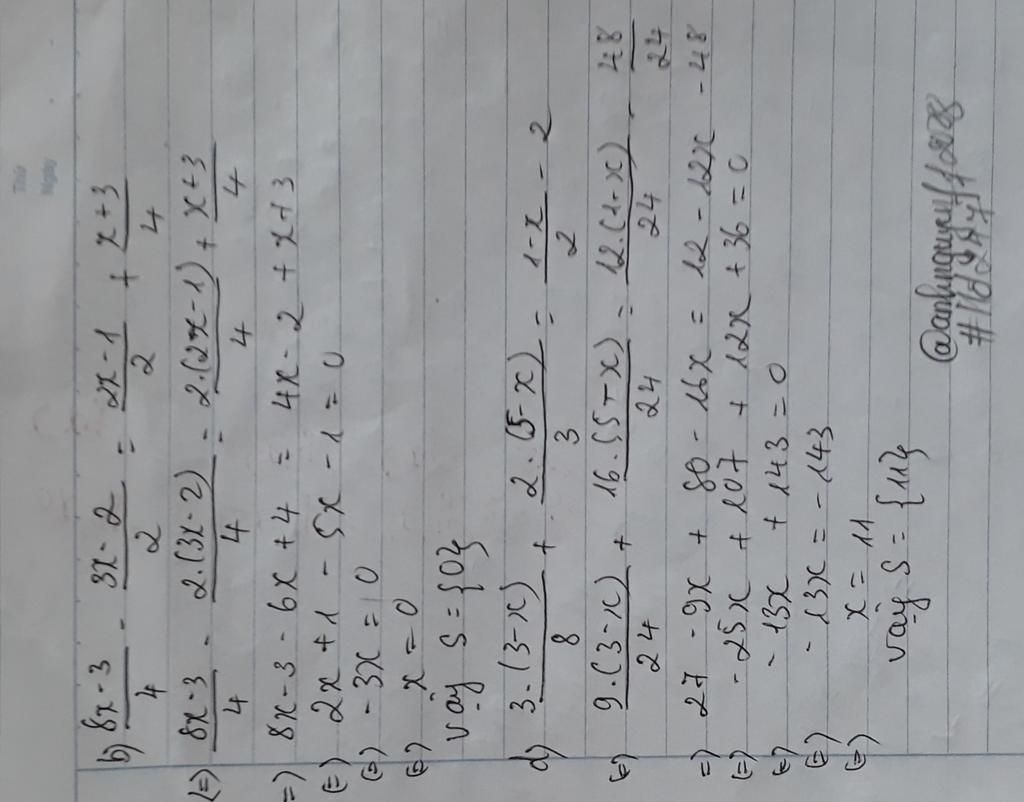 Thứ
Ngày
b) \frac{8x-3}{4} - \frac{3x-2}{2} = \frac{2x-1}{2} + \frac{x+3}{4}
(=) \frac{8x-3}{4} - \frac{2.(3x-2)}{4} = \frac{2.(2x-1)}{4} + \frac{x+3}{4}
=) 8x-3 - 6x+4 = 4x-2 + x+3
(=) 2x+1 - 5x-1 = 0
(=) -3x = 0
(=) x = 0
vậy S = {0}
d) \frac{3.(3-x)}{8} + \frac{2.(5-x)}{3} = \frac{1-x}{2} - 2
(=) \frac{9.(3-x)}{24} + \frac{16.(5-x)}{24} = \frac{12.(1-x)}{24} - \frac{48}{24}
=) 27 - 9x + 80 - 16x = 12 - 12x - 48
(=) -25x + 107 + 12x + 36 = 0
(=) -13x + 143 = 0
(=) -13x = -143
(=) x = 11
vậy S = {11}